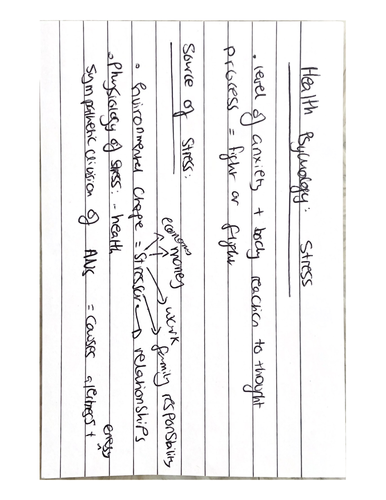 Health Psychology: Stress
• level of anxiety + body reaction to thought
process = fight or flight
Source of Stress:
economic money work family responsibility
• environmental change = Stressor → relationships
• Physiology of stress: - health
Sympathetic division of ANS = causes alertness +
energy